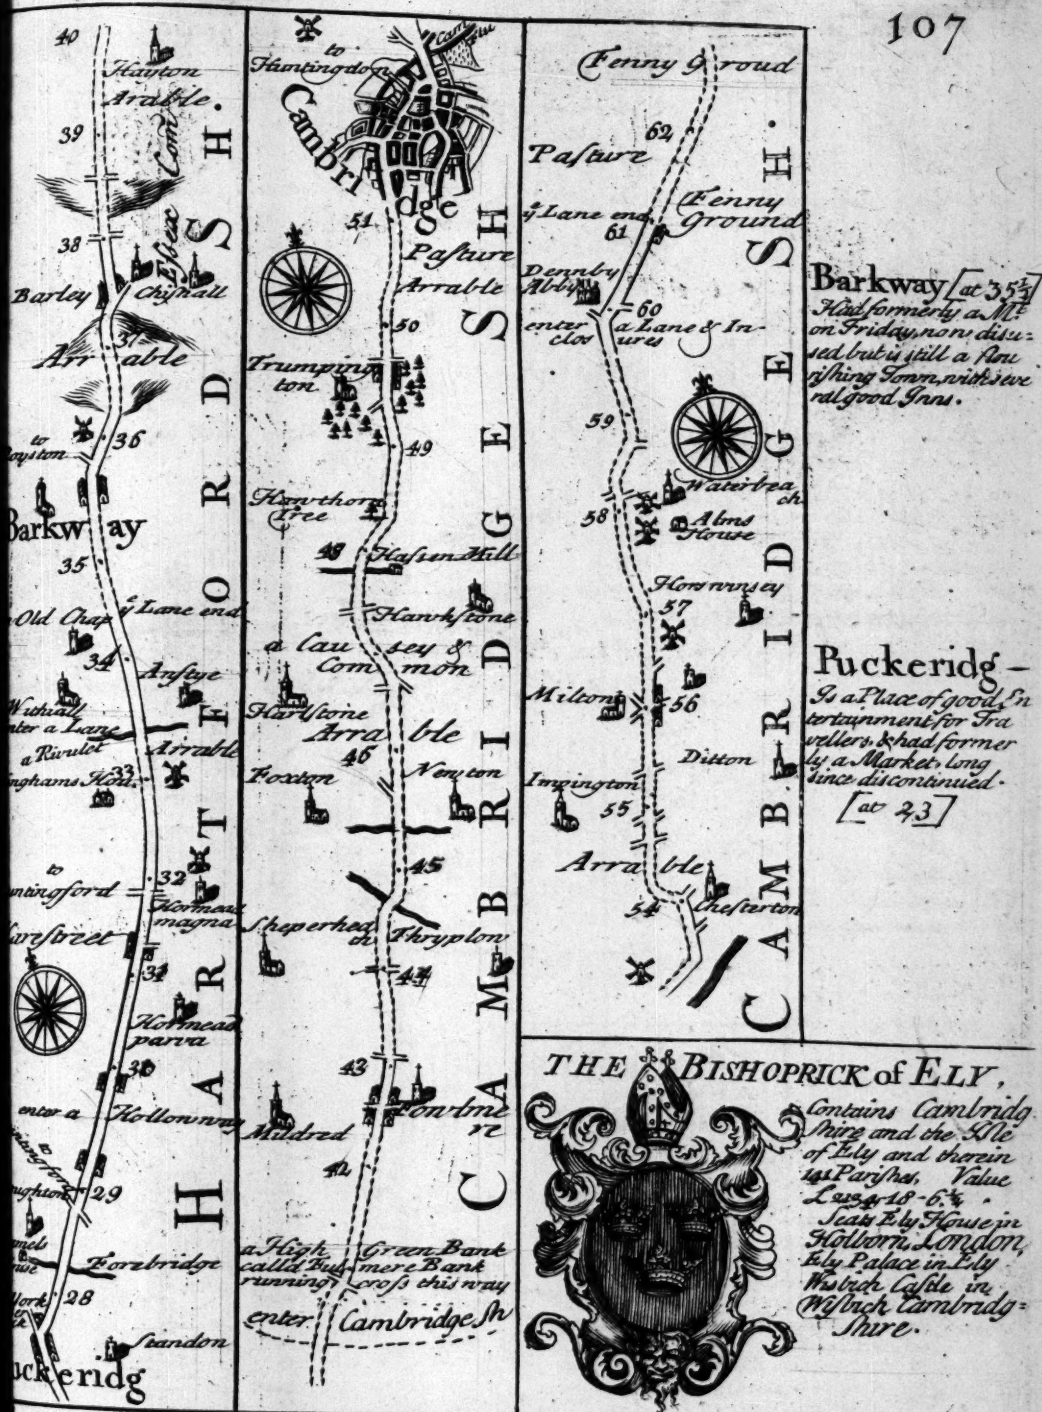 107
40
Hayton
Arrable.
39
Essex Com̄
38
Barley
Chishall
37
Arr able
36
to
oyston
Barkw ay
35
Old Chap
yᵉ Lane end
34
Anstye
Withiall
nter a Lane
a Rivulet
Arrable
33
to
32
untingford
Hormead
magna
arestreet
31
Hormead
parva
30
enter a Hollow way
29
Forebridge
28
Standon
uckeridg
HARTFORDSH.
to
Huntingdon
Cam Flu
Cambri dge
51
Pasture
Arrable
50
Trumping
ton
49
Hawthorn
Tree
48
Hassen Hill
Hawkstone
a Cau sey &
Com mon
Harlstone
Arra ble
46
Foxton
Newton
45
Sheperhed
th
Thryplow
44
43
Fowlme
re
Mildred
42
a High Green Bank
calld Bul mere Bank
running cross this way
enter Cambridge Sh
CAMBRIDGESH
Fenny Groud
62
Pasture
Fenny
Ground
yᵉ Lane end
61
Dennby
Abby
60
enter a Lane & In-
clos ures
59
Waterbea
ch
58
Alms
House
Horswinsey
57
Milton
56
Ditton
Impington
55
Arra ble
54
Chesterton
CAMBRIDGESH.
Barkway [at 35½]
Had formerly a Mᵗ
on Friday, now disu=
sed but is still a flou
rishing Town, with seve
ral good Inns.
Puckeridg —
Is a Place of good En
tertainment for Tra
vellers, & had former
ly a Market, long
since discontinued.
[at 23]
THE BISHOPRICK of ELY,
Contains Cambridg
shire and the Isle
of Ely and therein
141 Parishes, Value
Seats Ely House in
Holborn, London,
Ely Palace in Ely
Wisbich Castle in
Wisbich Cambridg=
shire.